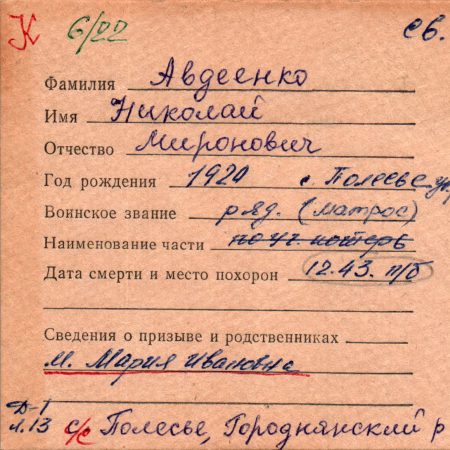 К 6/22 св.
Фамилия Авдеенко
Имя Николай
Отчество Миронович
Год рождения 1920 с. Полесье
Воинское звание ряд. (матрос)
Наименование части по уч. потерь
Дата смерти и место похорон 12.43. п/б
Сведения о призыве и родственниках
м. Мария Ивановна
Д-1
л. 13 с/с Полесье, Городнянский р